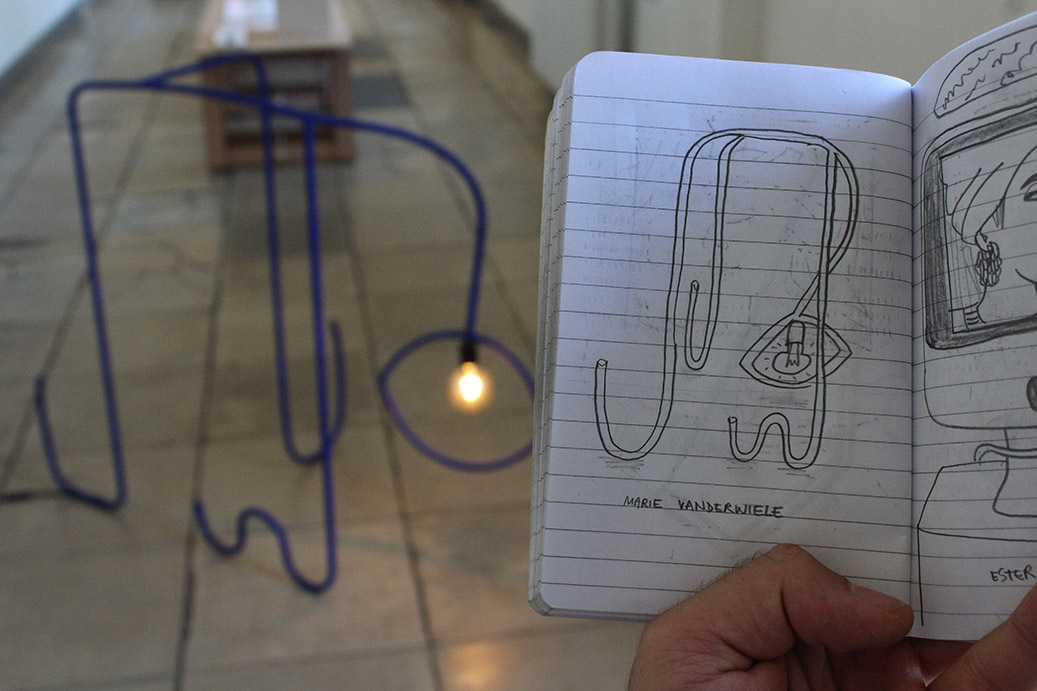 MARIE VANDERWIELE
ESTER